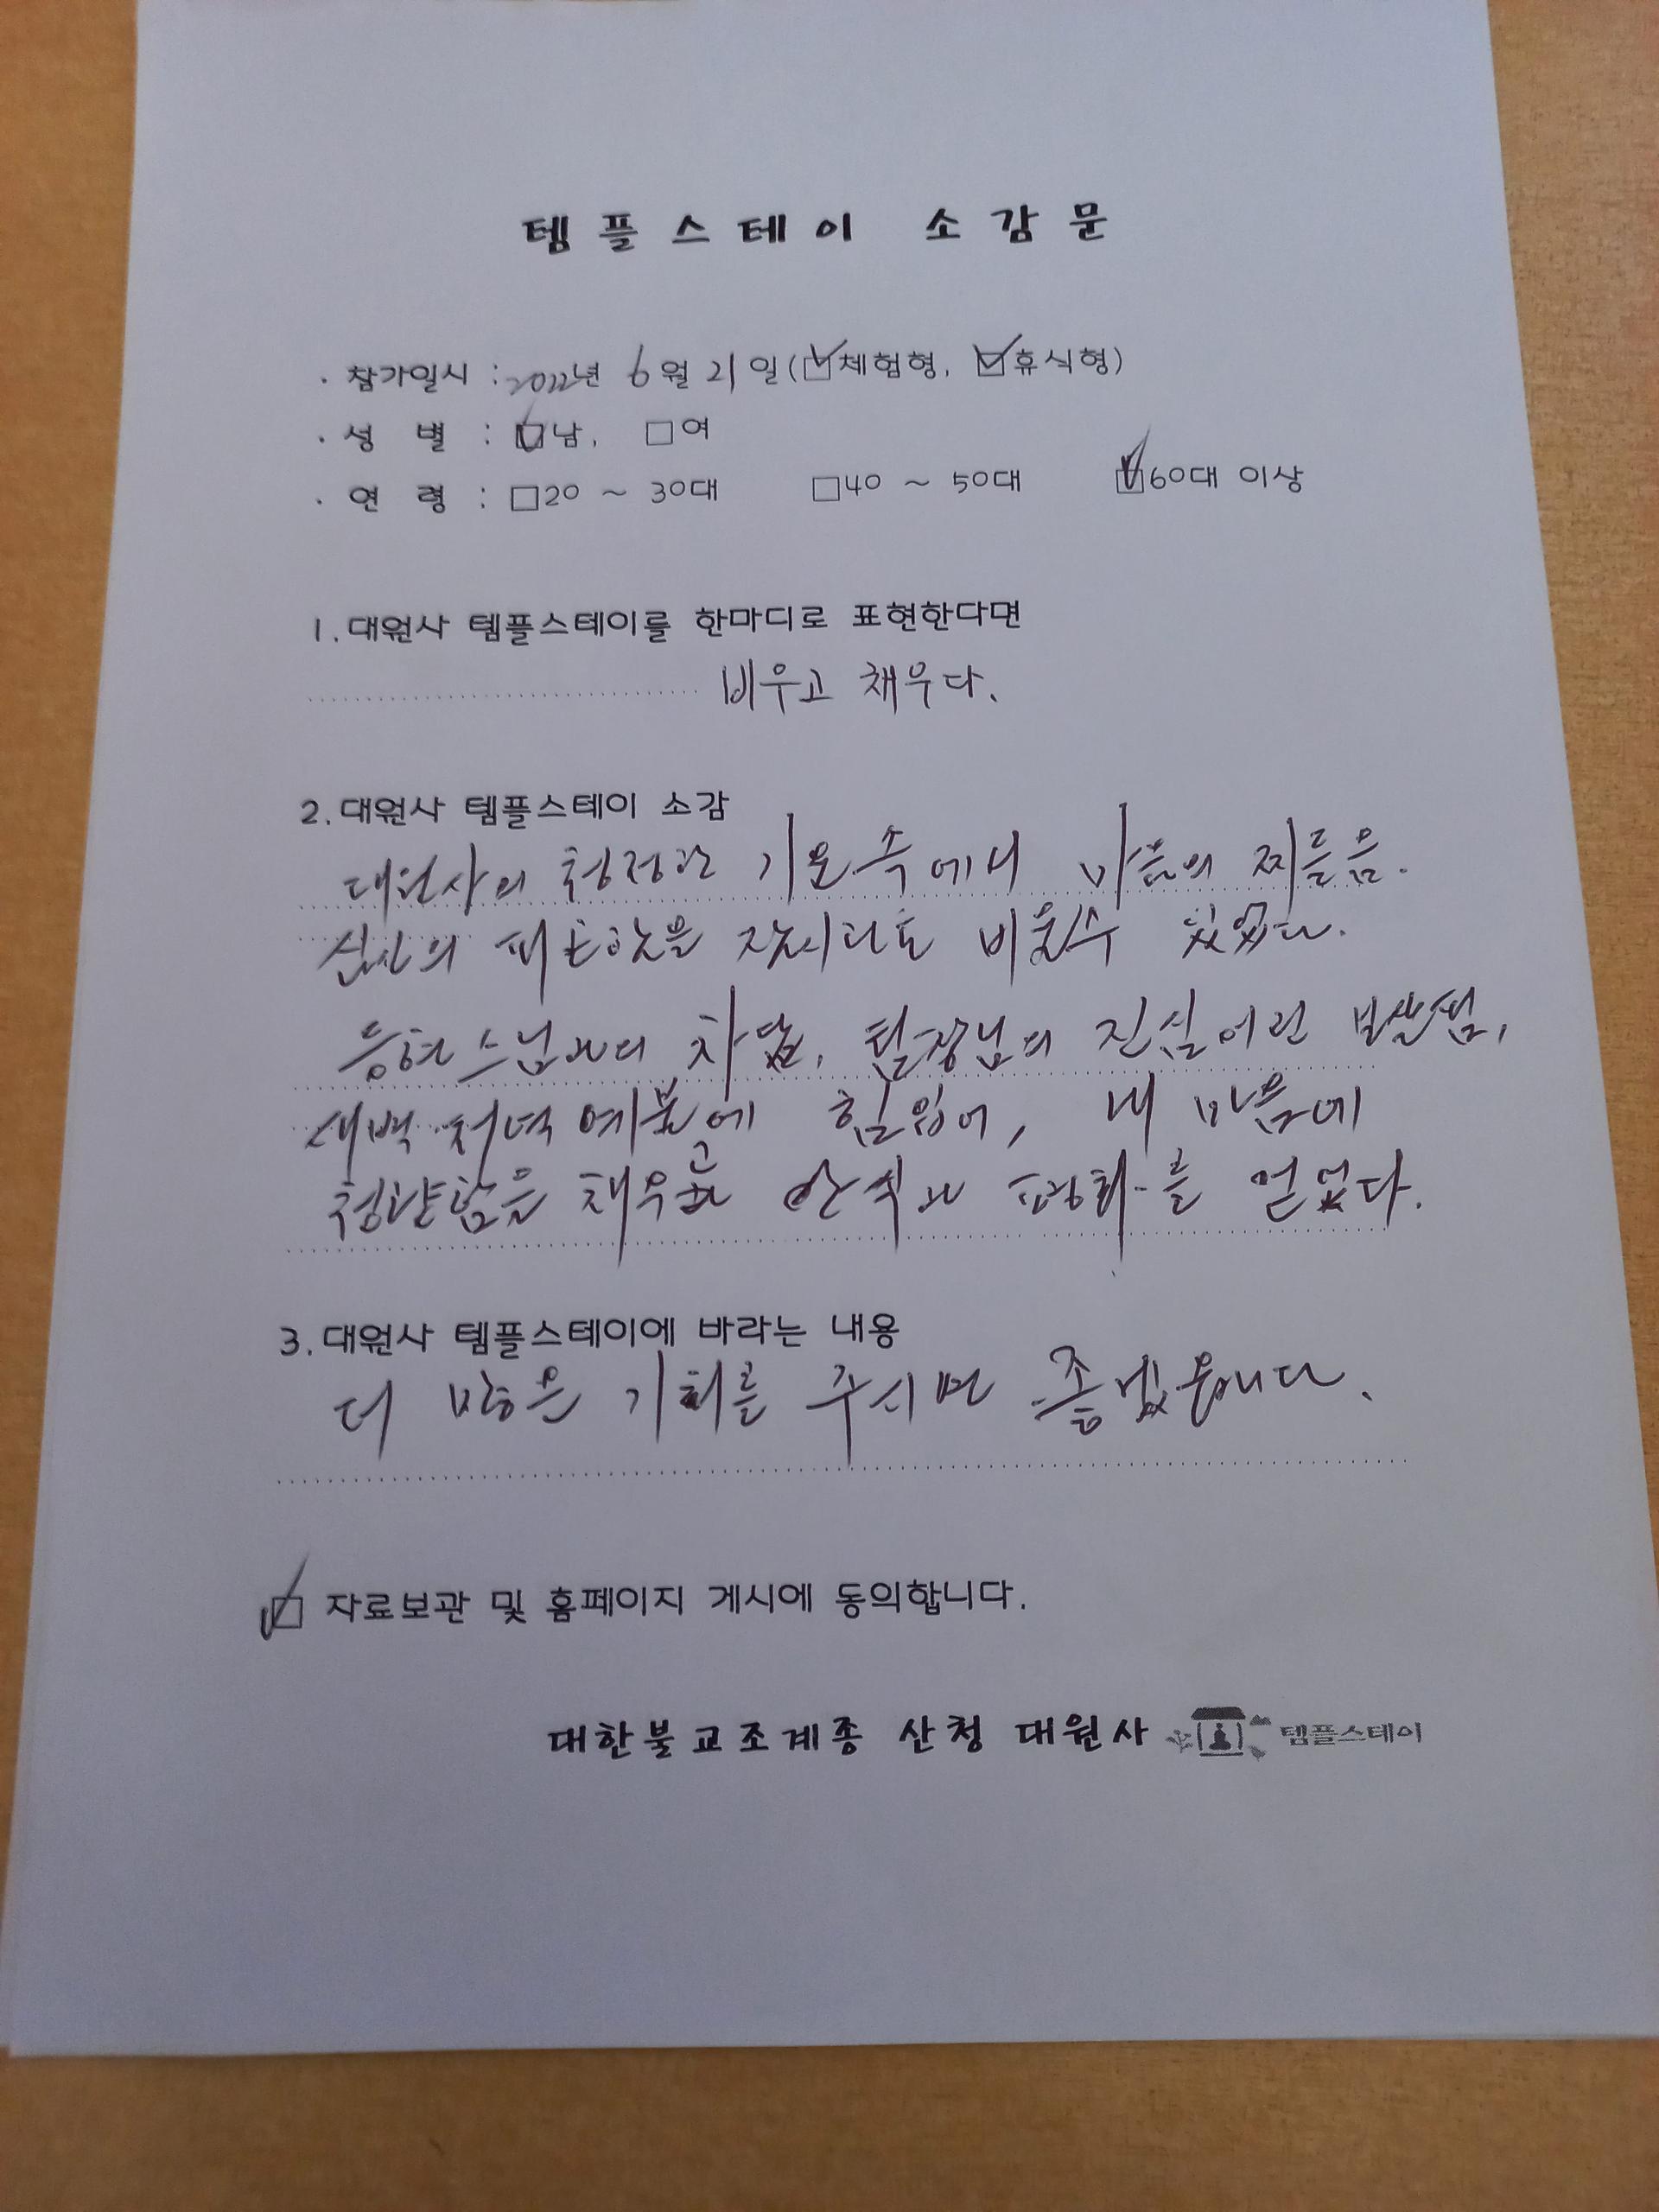 템플스테이 소감문
· 참가일시 : 2022년 6월 21일(☑체험형, ☑휴식형)
· 성 별 : ☑남, □여
· 연 령 : □20 ~ 30대 □40 ~ 50대 ☑60대 이상
1.대원사 템플스테이를 한마디로 표현한다면
비우고 채우다.
2.대원사 템플스테이 소감
대원사의 청정한 기운속에서 마음의 찌들음.
심신의 피로함을 잠시라도 비울수 있었다.
등현스님과의 차담, 팀장님의 진심어린 보살핌,
새벽·저녁 예불에 힘입어, 내 마음에
청량함을 채우고 안식과 평화를 얻었다.
3.대원사 템플스테이에 바라는 내용
더 많은 기회를 주시면 좋겠읍니다.
☑ 자료보관 및 홈페이지 게시에 동의합니다.
대한불교조계종 산청 대원사 템플스테이